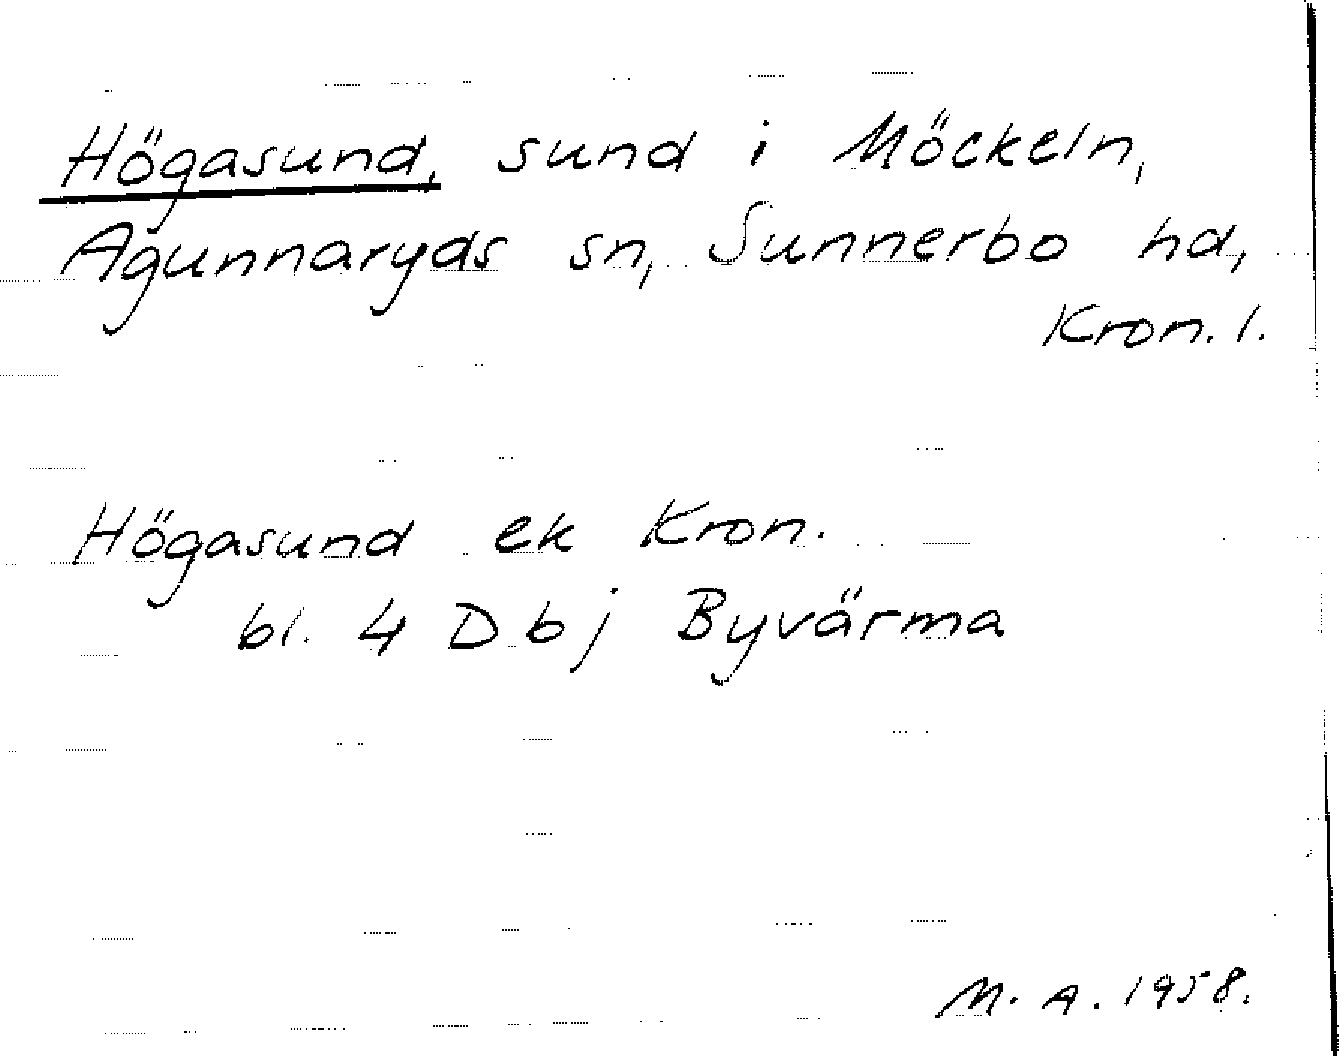 Högasund, sund i Möckeln,
Agunnaryds sn, Sunnerbo hd,
Kron. l.
Högasund ek Kron.
bl. 4 D bj Byvärma
M. A. 1958.